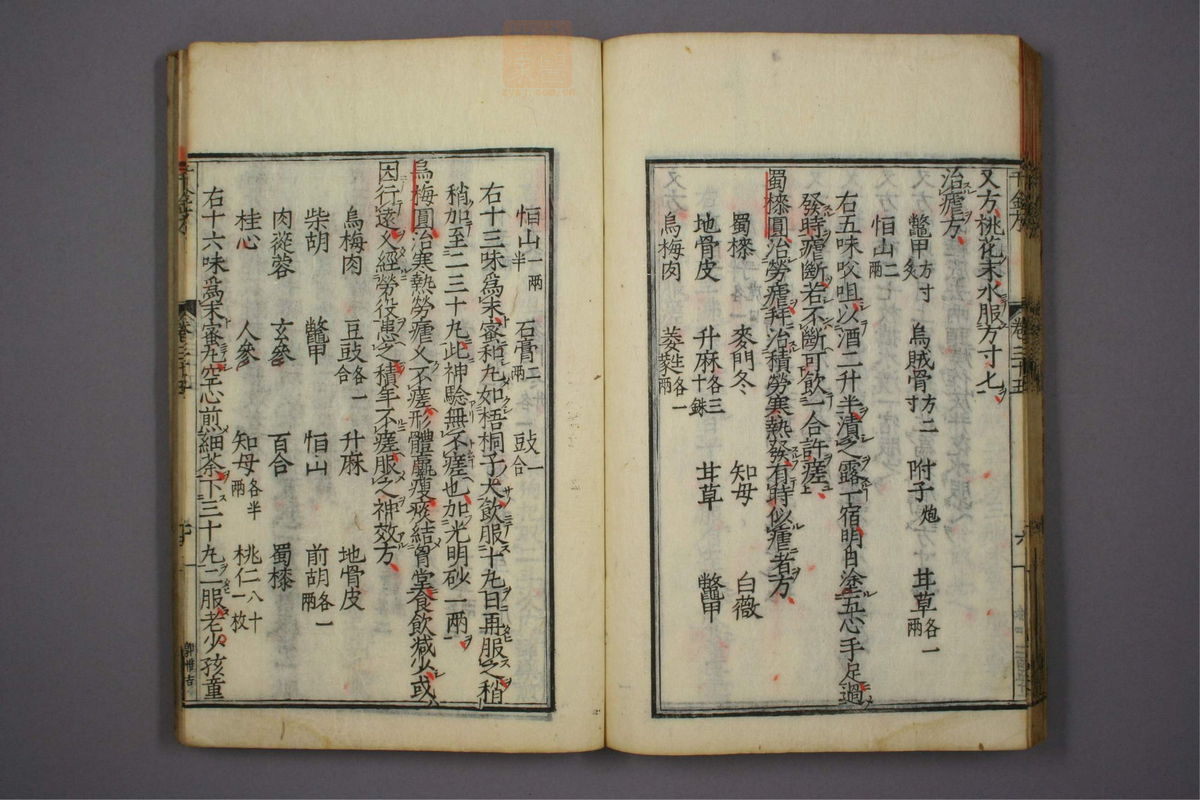 又方桃花末水服方寸匕
治瘧方
鼈甲方寸炙 烏賊骨方二寸 附子炮 甘草各一兩
恒山二兩
右五味㕮咀以酒二升半漬之露一宿明日塗五心手足過
發時瘧斷若不斷可飲一合許瘥
蜀㯃圓治勞瘧并治積勞寒熱發有時似瘧者方
蜀㯃 麥門冬 知母 白薇
地骨皮 升麻各三十銖 甘草 鼈甲
烏梅肉 萎蕤各一兩
恒山一兩半 石膏二兩 豉一合
右十三味爲末蜜和丸如梧桐子大飲服十丸日再服之稍
稍加至二三十丸此神驗無不瘥也加光明砂一兩
烏梅圓治寒熱勞瘧久不瘥形體羸瘦痰結胷堂食飲减少或
因行遠久經勞役患之積年不瘥服之神效方
烏梅肉 豆豉各一合 升麻 地骨皮
柴胡 鼈甲 恒山 前胡各一兩
肉蓯蓉 玄參 百合 蜀㯃
桂心 人參 知母各半兩 桃仁八十一枚
右十六味爲末蜜丸空心煎細茶下三十丸二服老少孩童
千金方 卷三十五 六
千金方 卷三十五